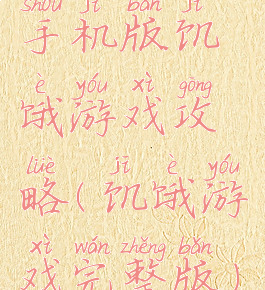 shǒu jī bǎn jī
手机版饥
è yóu xì gōng
饿游戏攻
lüè jī è yóu
略(饥饿游
xì wán zhěng bǎn
戏完整版)